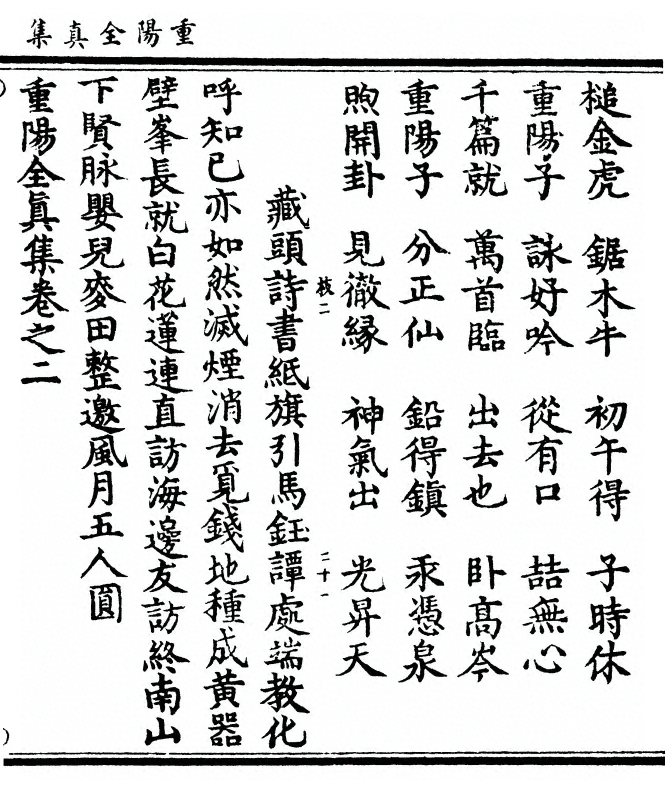 重陽全真集
槌金虎　鋸木牛　初午得　子時休
重陽子　詠好吟　從有口　喆無心
千篇就　萬首臨　出去也　卧髙岑
重陽子　分正仙　鉛得鎮　汞憑泉
煦開卦　見徹緣　神氣出　光昇天
枝二
二十一
藏頭詩書紙旗引馬鈺譚處端教化
呼知已亦如然滅煙消去覓錢地種成黄器
壁峯長就白花蓮連直訪海邊友訪終南山
下賢脉嬰兒麥田整邀風月五人圓
重陽全眞集卷之二